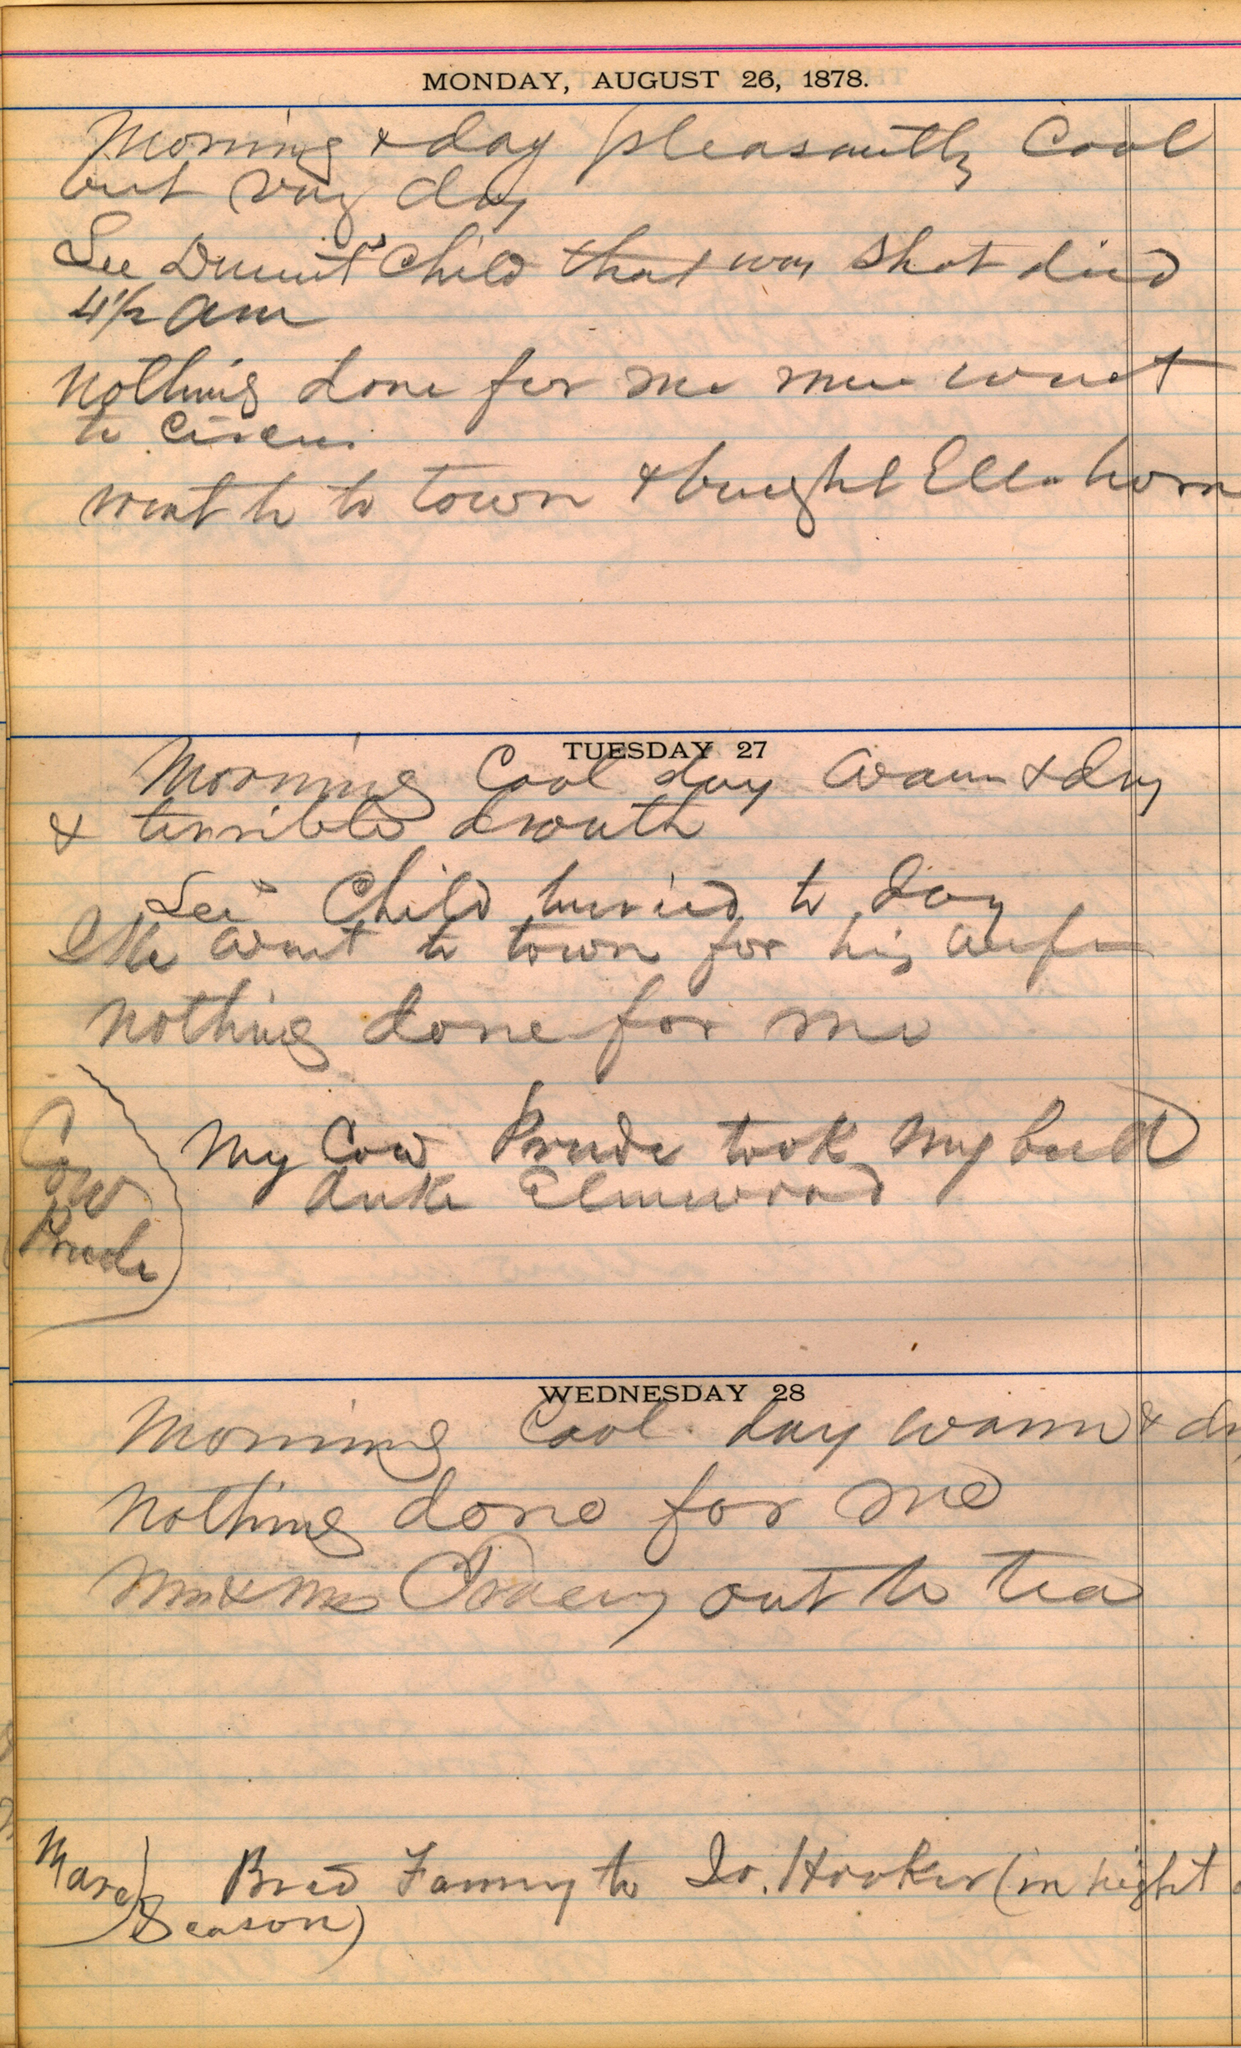 MONDAY, AUGUST 26, 1878.
Morning & day pleasantly Cool
but very dry
Lee Child that was shot died
4 1/2 am
Nothing done for me men went
to Circus
went to to town & bought Ella horn
TUESDAY 27
Morning Cool day warm & dry
& terrible drouth
Lee's Child buried to day
Ike went to town for his wife
Nothing done for me
Cow
Prude
My Cow Prude took My bull
Duke Elmwood
WEDNESDAY 28
Morning Cool day warm & dr
Nothing done for me
out to tea
Mare Bred Fanny to Jo. Hooker (in height
Season)